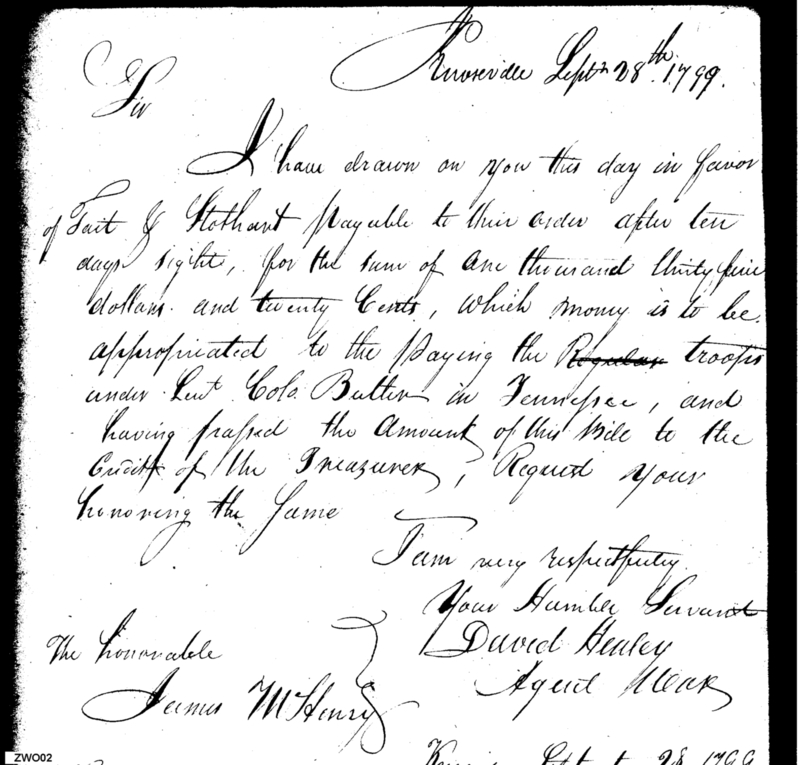 Knoxville Septr. 28th. 1799.
Sir
I have drawn on you this day in favor
of Tait & Stothart payable to their order after ten
days sight, for the sum of One thousand thirty five
dollars. and twenty Cents, which money is to be
appropriated to the paying the Regular troops
under Leut Colo. Butler in Tennessee, and
having passed the Amount of this Bill to the
Credit of the Treasurer, Request your
honoring the Same
I am very respectfully
Your Humble Servant
David Henley
Agent W
The honorable
James McHenry
28 1799
ZWO02